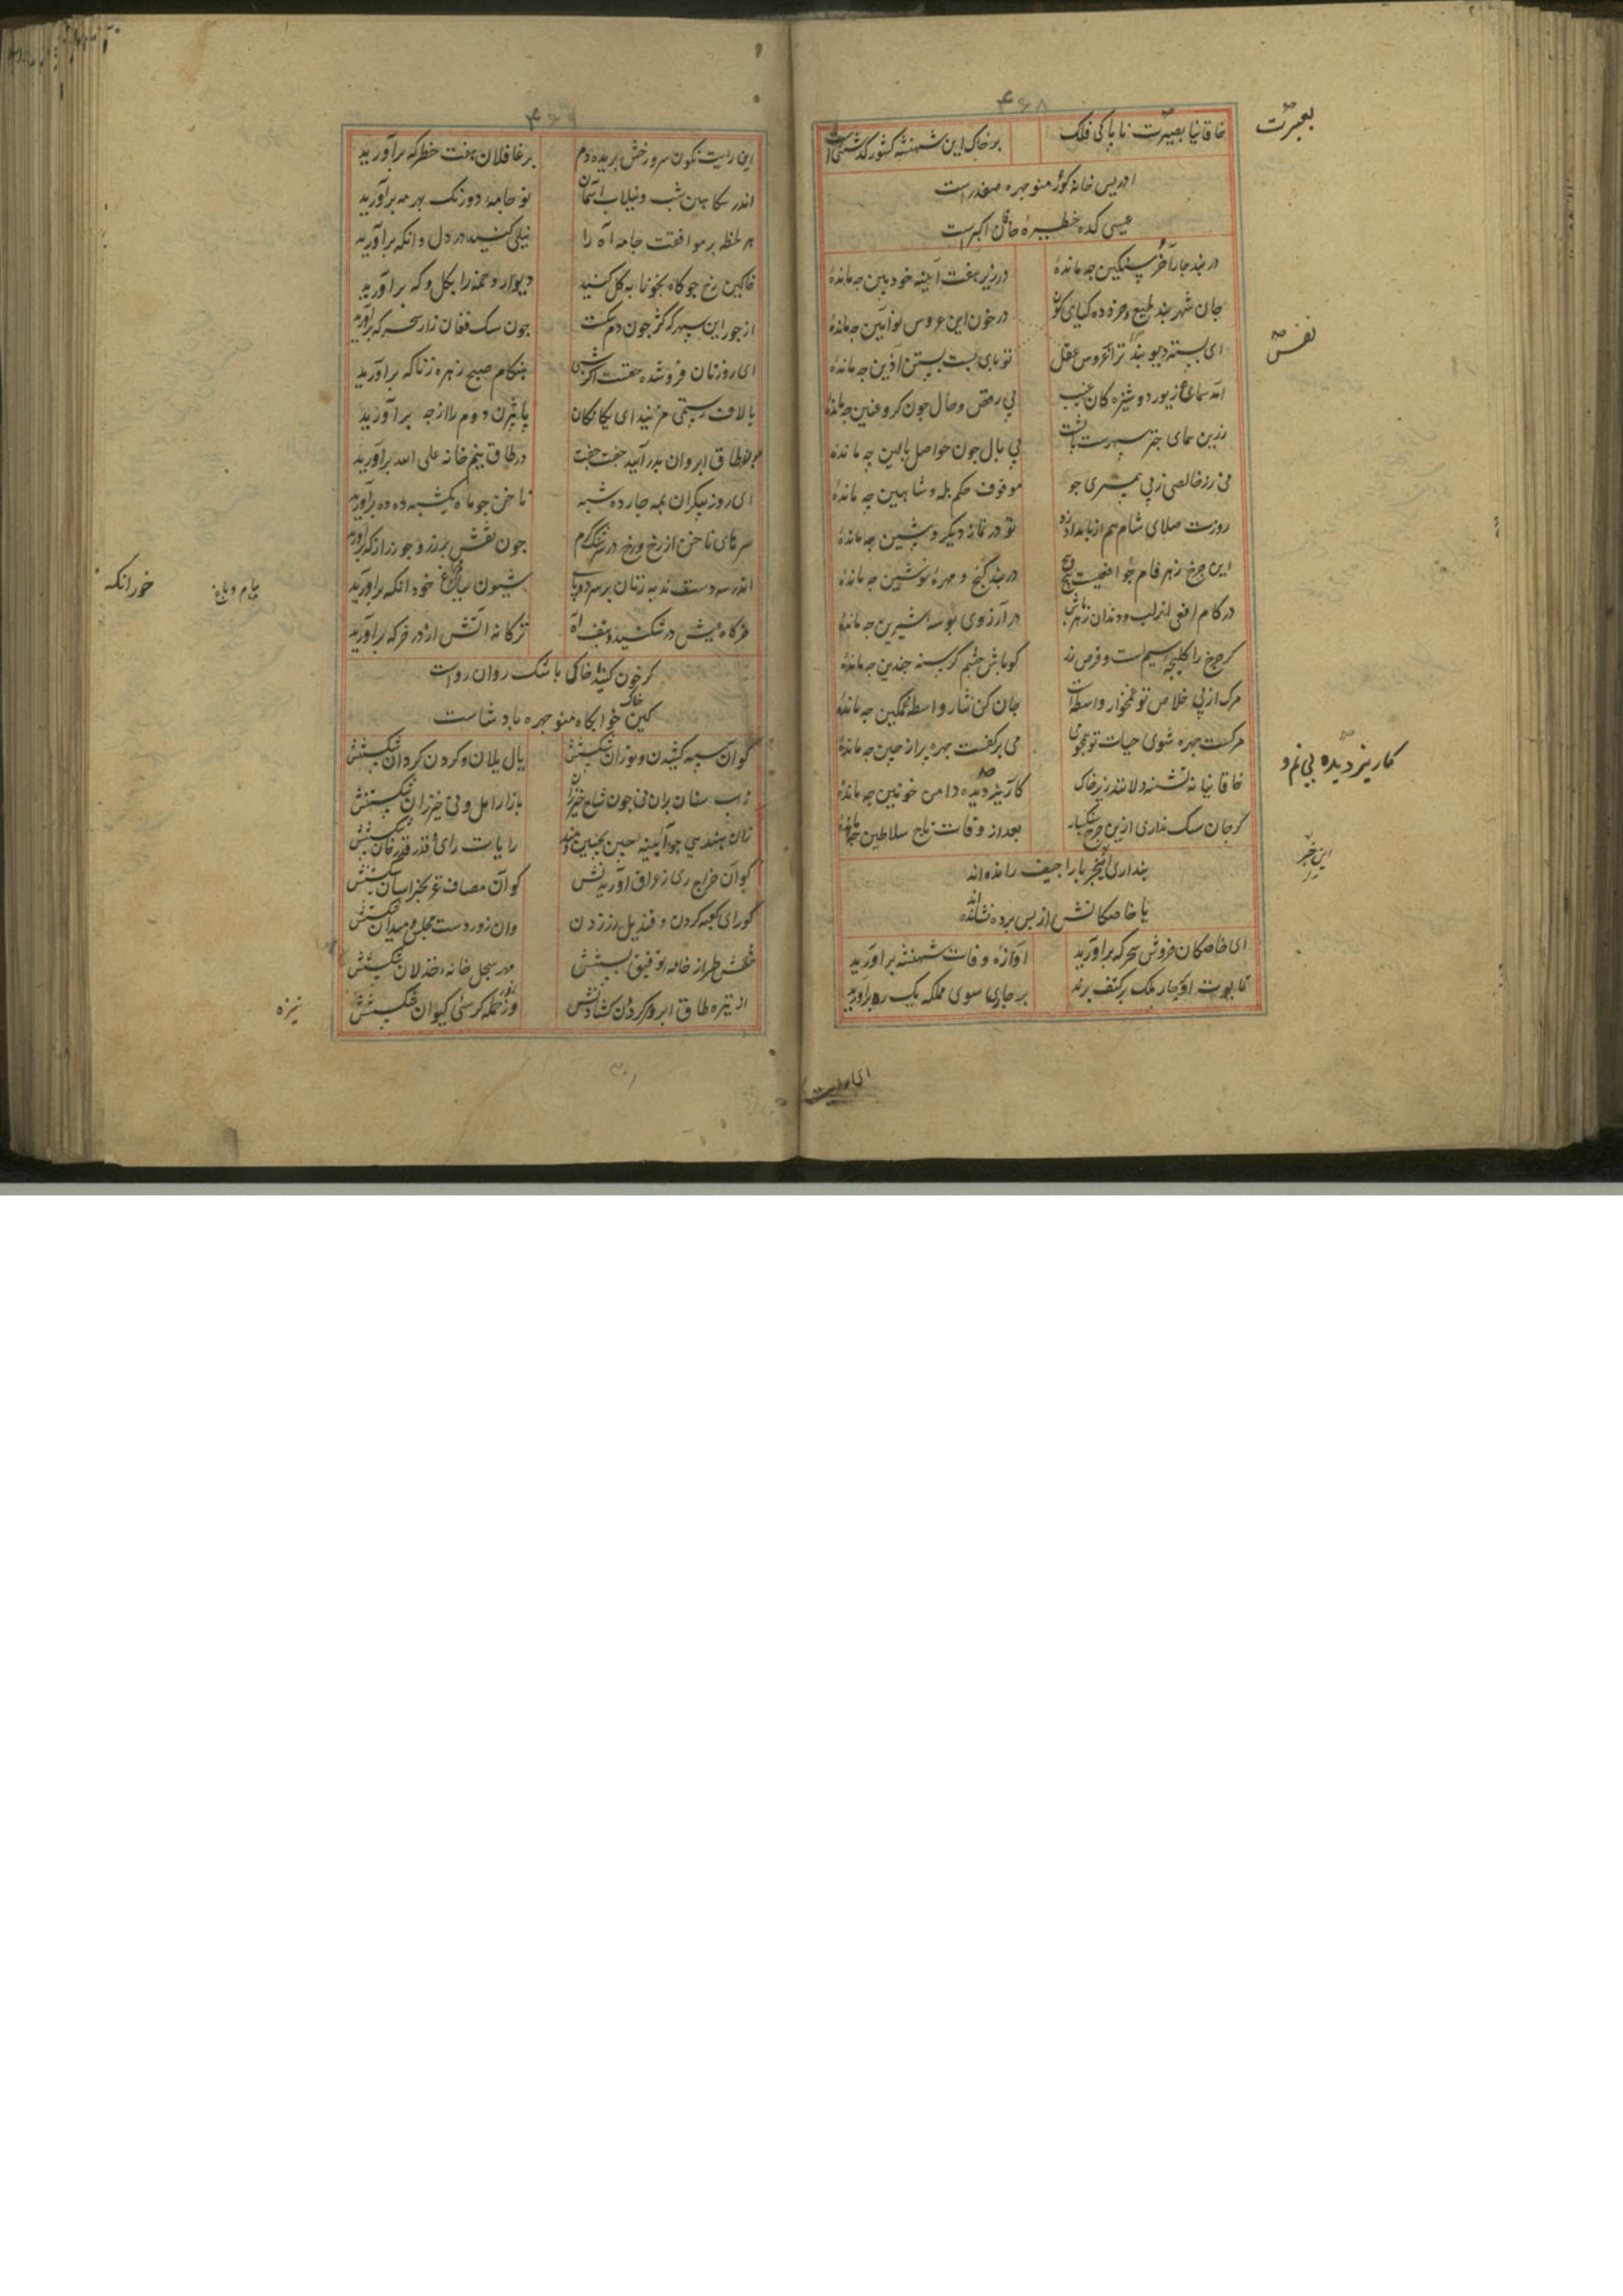 ۴۶۸
خاقانیا بصیرت ناپاکی فلک بر خاک این شهنشه کشور گذشتنی است
بعبرت
ادریس خانه گور منوچهر صفدر است
عیسی کده خطیرهٔ خاقان اکبر است
در بند چار آخر سنگین چه ماندهٔ در زیر هفت آینه خودبین چه ماندهٔ
جان شهربند طبع و خرد ده کیای کون در خون این عروس نو آیین چه ماندهٔ
نفس
ای بسته دیو تراعروس عقل تو پای بست بستن آذین چه ماندهٔ
آمد سماع زیور دوشیزه کان غیب بی رقص و حال چون کر و عنین چه ماندهٔ
زرین همای چتر سپهرست بالشت بی بال چون حواصل بالین چه ماندهٔ
نی زر خالصی ز پی همسری جو موقوف حکم بله و شاهین چه ماندهٔ
روزت صلای شام هم از بامداد زد تو در نماز دیگر و پیشین چه ماندهٔ
این چرخ زهرفام چو افعیست پیچ پیچ در بند گنج و مهرهٔ نوشین چه ماندهٔ
در کام افعی از لب و دندان زهرپاش در آرزوی بوسه شیرین چه ماندهٔ
گر چرخ را کلیچه سیم است و قرص زر گو باش چشم گرسنه چندین چه ماندهٔ
مرگ از پی خلاص تو غمخوار واسطه است جان کن نثار واسطه غمگین چه ماندهٔ
مرگست چهره شوی حیات تو همچو می می بر کفست چهره پر از چین چه ماندهٔ
خاقانیا نه تشنه دلانند زیر خاک کاریز دیده دامن خونین چه ماندهٔ
کاریز دیده بی نم و
گر جان سگ نداری ازین چرخ سنگبار بعد از وفات تاج سلاطین چه ماندهٔ
این خبر را
پنداری این خبر باراجیف رانده‌اند
یا خاصکانش از پس پرده نشانده‌اند
ای خاصکان خروش سحرگه برآورید آوازهٔ وفات شهنشه برآورید
تابوت او چار ملک بر کتف برند بر چاری سوی مملکه یک ره برآورید
۴۶۹
این رایت نگون سر و رخش بریده دم بر غافلان هفت خطر که برآورید
اندر سکاهن شب و نیلاب آسمان نو جامه دو رنگ بهر مه برآورید
هر لحظه بر موافقت جامه آه را نیلی کنید در دل و آنگه برآورید
خاکین رخ چو کاه بخونابه گل کنید دیوار دخمه را بگل و که برآورید
از جور این سپهر که کژ چون دم سگست چون سگ فغان زار سحرگه برآورید
ای روزتان فروشده حقست اگر شبی هنگام صبح زهره ز ناگه برآورید
با لاف رستمی مزنید ای یگانگان یا بیژن دوم را از چه برآورید
طاق ابروان بدر آیید جفت جفت در طاق پنجم خانه علی الله برآورید
ای روز پیکران بمه چارده شبه ناخن چو ماه یکشبه ده ده برآورید
سرهای ناخن از رخ و رخ در سرشک گرم چون نقش بر زر و چو زر از گه برآورید
اندر سه دست ندبه زنان بر سر دو پای شیون بباغ خود آنگه برآورید
خورانگه
بام و باغ
خرگاه عیش درشکنید و بتف آه ترکانه آتش از در خرگه برآورید
گر خون کنید خاکی باشک روان رواست
کین خاک خوابگاه منوچهر پادشاست
کو آن سپه کشیدن و توران شکستنش یال یلان و گردن گردان شکستنش
زاب سنان بران نی چون شاخ خیزران بازار امل و نی خیزران شکستنش
زان هندسی چو آینه چین بچین هند رایات رای و قدر قدرخان شکستنش
کو آن خراج ری ز عراق آوریدنش کو آن مصاف غز بخراسان شکستنش
کو رای کعبه کردن و قندیل زر زدن وان زور دست مجلس و میدان شکستنش
نقش طراز خامه توفیق بستنش مهر سجل خانه خذلان شکستنش
از تیزه طاق ابرو گردون گشادنش وز حمله کرسی کیوان شکستنش
نیزه
۳۰۱